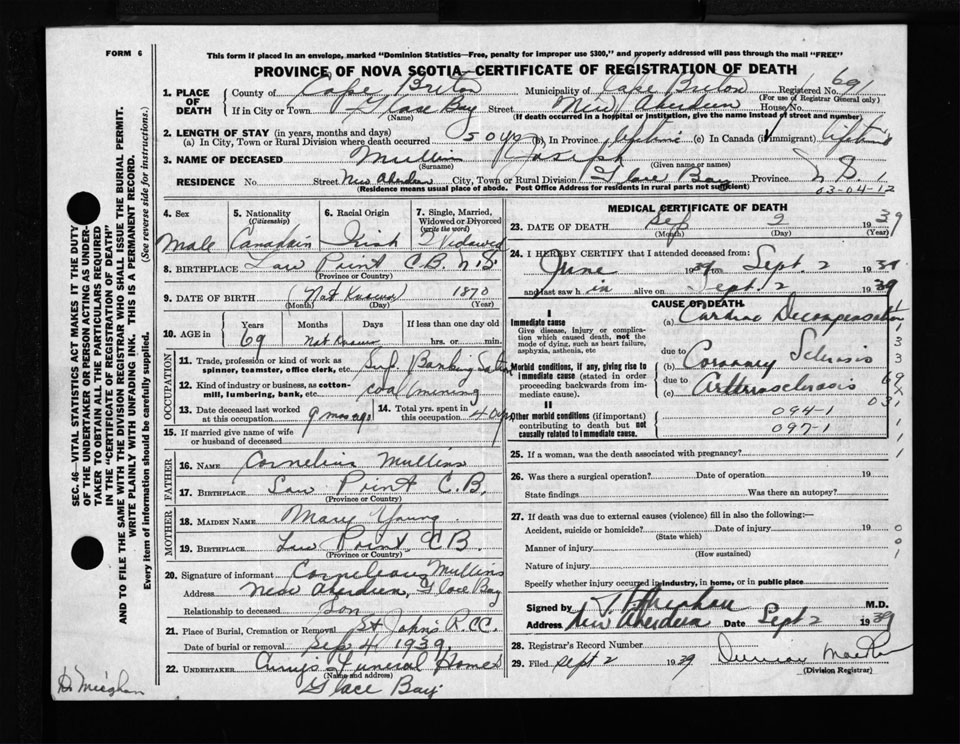 FORM 6
This form if placed in an envelope, marked "Dominion Statistics—Free, penalty for improper use $300," and properly addressed will pass through the mail "FREE"
PROVINCE OF NOVA SCOTIA—CERTIFICATE OF REGISTRATION OF DEATH
1. PLACE OF DEATH County of Cape Breton Municipality of Cape Breton Registered No. 69
(For use of Registrar General only)
If in City or Town Glace Bay Street New Aberdeen House No.
(Name) (If death occurred in a hospital or institution, give the name instead of street and number)
2. LENGTH OF STAY (in years, months and days)
(a) In City, Town or Rural Division where death occurred 50 yrs (b) In Province lifetime (c) In Canada (if immigrant) lifetime
3. NAME OF DECEASED Mullins Joseph
(Surname) (Given name or names)
RESIDENCE No. Street New Aberdeen City, Town or Rural Division Glace Bay Province N.S.
(Residence means usual place of abode. Post Office Address for residents in rural parts not sufficient)
03-04-12
4. Sex Male
5. Nationality (Citizenship) Canadain
6. Racial Origin Irish
7. Single, Married, Widowed or Divorced (write the word) Widowed
8. BIRTHPLACE Low Point C.B. N.S.
(Province or Country)
9. DATE OF BIRTH Not Known 1870
(Month) (Day) (Year)
10. AGE in Years Months Days If less than one day old
69 Not Known hrs. or min.
OCCUPATION
11. Trade, profession or kind of work as spinner, teamster, office clerk, etc. Banking Station
12. Kind of industry or business, as cotton-mill, lumbering, bank, etc. coal mining
13. Date deceased last worked at this occupation 9 mos ago
14. Total yrs. spent in this occupation 40 yrs
15. If married give name of wife or husband of deceased
FATHER
16. NAME Cornelius Mullins
17. BIRTHPLACE Low Point C.B.
(Province or Country)
MOTHER
18. MAIDEN NAME Mary Young
19. BIRTHPLACE Low Point C.B.
(Province or Country)
20. Signature of informant Corneleaus Mullins
Address New Aberdeen, Glace Bay
Relationship to deceased Son
21. Place of Burial, Cremation or Removal St John's R.C.C.
Date of burial or removal Sep 4, 1939
22. UNDERTAKER Funeral Homes
(Name and address)
Glace Bay
MEDICAL CERTIFICATE OF DEATH
23. DATE OF DEATH Sep 2 1939
(Month) (Day) (Year)
24. I HEREBY CERTIFY that I attended deceased from:
June 1939 to Sept. 2 1939
and last saw him alive on Sept. 2 1939
CAUSE OF DEATH
I
Immediate cause
Give disease, injury or complication which caused death, not the mode of dying, such as heart failure, asphyxia, asthenia, etc
(a) Cardiac Decompensation
due to
Morbid conditions, if any, giving rise to immediate cause (stated in order proceeding backwards from immediate cause).
(b) Coronary Sclerosis
due to
(c) Arteriosclerosis
II
Other morbid conditions (if important) contributing to death but not causally related to immediate cause.
094-1
097-1
25. If a woman, was the death associated with pregnancy?
26. Was there a surgical operation? Date of operation 19
State findings Was there an autopsy?
27. If death was due to external causes (violence) fill in also the following:—
Accident, suicide or homicide? Date of injury 19
(State which)
Manner of injury
(How sustained)
Nature of injury
Specify whether injury occurred in industry, in home, or in public place
Signed by M.D.
Address New Aberdeen Date Sept 2 1939
28. Registrar's Record Number
29. Filed Sept 2 1939
(Division Registrar)
SEC. 46—VITAL STATISTICS ACT MAKES IT THE DUTY OF THE UNDERTAKER OR PERSON ACTING AS UNDERTAKER TO OBTAIN ALL THE PARTICULARS REQUIRED IN THE "CERTIFICATE OF REGISTRATION OF DEATH" AND TO FILE THE SAME WITH THE DIVISION REGISTRAR WHO SHALL ISSUE THE BURIAL PERMIT.
WRITE PLAINLY WITH UNFADING INK. THIS IS A PERMANENT RECORD.
Every item of information should be carefully supplied. (See reverse side for instructions.)